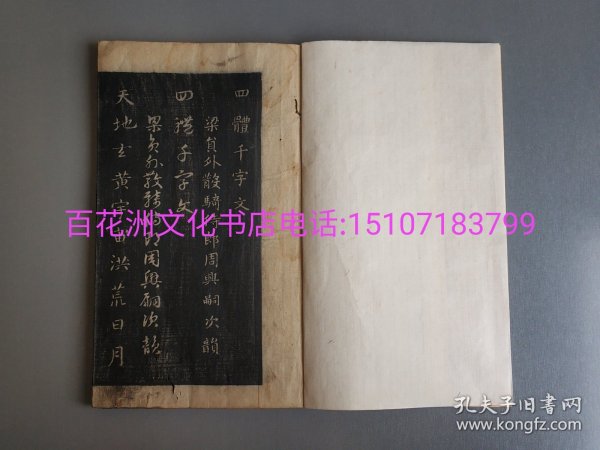 四體千字文
梁貟外散騎侍郎周興嗣次韻
四體千字文
梁貟外散騎侍郎周興嗣次韻
天地玄黄宇宙洪荒日月
百花洲文化书店电话:15107183799
孔夫子旧书网
www.kongfz.com